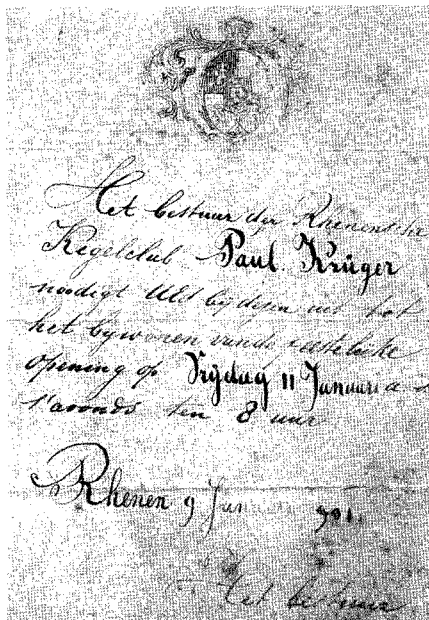 Het bestuur der Rhenensche
Kegelclub Paul Krüger
noodigt UEd bij dezen uit tot
het bijwonen van de feestelijke
opening op Vrijdag 11 Januari a s
's avonds ten 8 uur
Rhenen 9 Januari 901.
Het bestuur